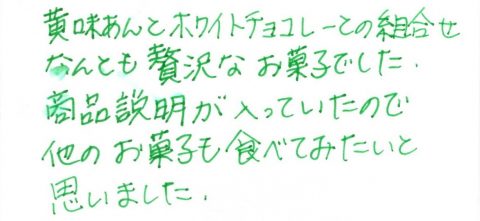 黄味あんとホワイトチョコレートの組合せ
なんとも贅沢なお菓子でした.
商品説明が入っていたので
他のお菓子も食べてみたいと
思いました.